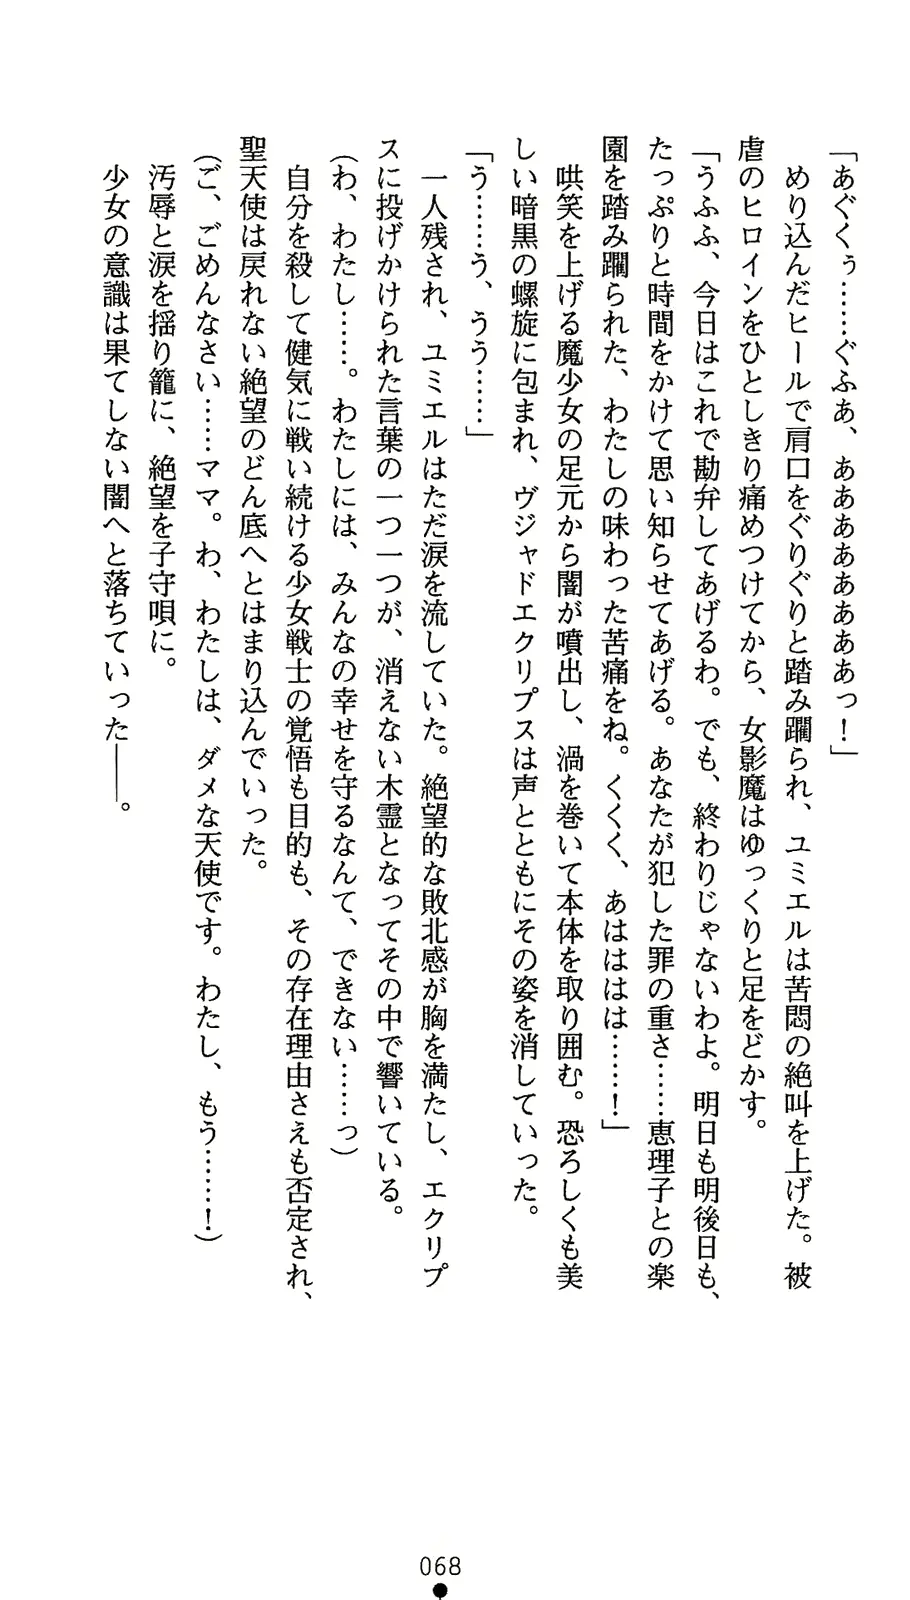 「あぐくぅ……ぐふあ、ああああああああっ！」
めり込んだヒールで肩口をぐりぐりと踏み躙られ、ユミエルは苦悶の絶叫を上げた。被
虐のヒロインをひとしきり痛めつけてから、女影魔はゆっくりと足をどかす。
「うふふ、今日はこれで勘弁してあげるわ。でも、終わりじゃないわよ。明日も明後日も、
たっぷりと時間をかけて思い知らせてあげる。あなたが犯した罪の重さ……恵理子との楽
園を踏み躙られた、わたしの味わった苦痛をね。くくく、あはははは……！」
哄笑を上げる魔少女の足元から闇が噴出し、渦を巻いて本体を取り囲む。恐ろしくも美
しい暗黒の螺旋に包まれ、ヴジャドエクリプスは声とともにその姿を消していった。
「う……う、うう……」
一人残され、ユミエルはただ涙を流していた。絶望的な敗北感が胸を満たし、エクリプ
スに投げかけられた言葉の一つ一つが、消えない木霊となってその中で響いている。
（わ、わたし……。わたしには、みんなの幸せを守るなんて、できない……っ）
自分を殺して健気に戦い続ける少女戦士の覚悟も目的も、その存在理由さえも否定され、
聖天使は戻れない絶望のどん底へとはまり込んでいった。
（ご、ごめんなさい……ママ。わ、わたしは、ダメな天使です。わたし、もう……！）
汚辱と涙を揺り籠に、絶望を子守唄に。
少女の意識は果てしない闇へと落ちていった――。
068